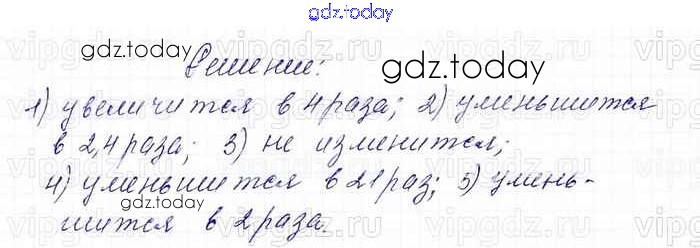 gdz.today
gdz.today
Решение:
gdz.today
1) увеличится в 4 раза; 2) уменьшится
в 2,4 раза; 3) не изменится;
4) уменьшится в 21 раз; 5) умень-
gdz.today
шится в 2 раза.